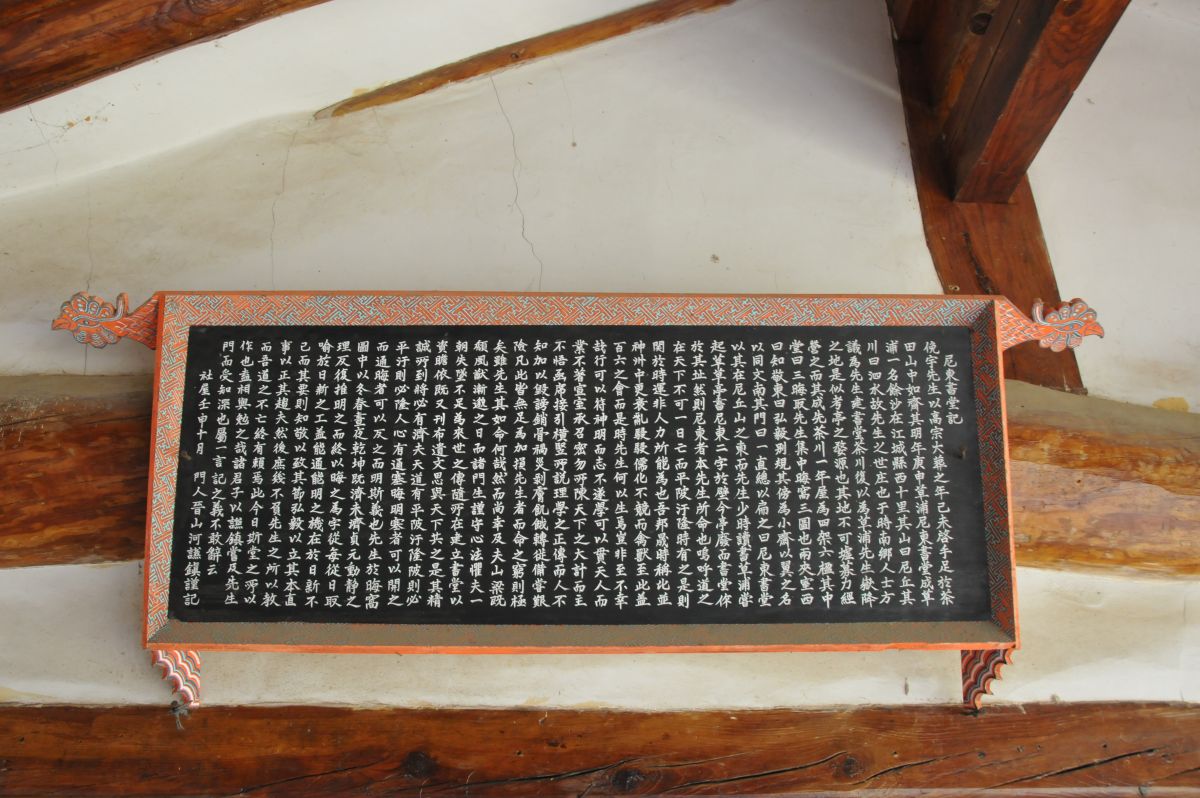 尼東書堂記
俛宇先生以高宗大葬之年己未啓手足於茶
田山中如齋其明年庚申草浦尼東書堂成草
浦一名餘沙在江城縣西十里其山曰尼丘其
川曰泗水故先生之世庄也于時南鄕人士方
議爲先生建書堂茶川復以爲草浦先生嶽降
之地是似考亭之婺源也其地不可墟葉力經
營之而其成先茶川一年屋爲四架六楹其中
堂曰三晦取先生集中晦窩三圖也兩夾室西
曰知敬東曰弘毅別規其傍爲小齋以翼之名
以同文南其門曰一直總以扁之曰尼東書堂
以其在尼丘山之東而先生少時讀書草浦嘗
起草草亭書尼東二字於壁今亭廢而書堂作
於其址然則尼東者本先生所命也嗚呼道之
在天下不可一日亡而平陂汙隆時有之是則
關於時運非人力所能爲也吾邦曩時稱北並
神州中更衰亂駸駸儒化不競而禽獸至此蓋
百六之會而是時先生何以生焉豈非至不幸
業不著堂堂承召密勿所陳天下之大計而主
哉行可以符神明而志不遂學可以貫天人而
不悟禹廟接引橫竪所說理學之正傳而人不
知加以毁謗銷骨禍災剥膚飢餓轉徙備嘗艱
險凡此皆無足爲加損先生者而命之窮則極
矣雖先生其如命何哉然而尚幸及夫山梁既
頹風猷漸邈之日而諸門生謹守心法懼夫一
朝失墜不足爲來世之傳隨所在建立書堂以
資瞻依既又刊布遺文思與天下共之是其精
誠所到將必有濟夫天道有平陂汙隆陂則必
平汙則必隆人心有通塞晦明塞者可以開之
而通晦者可以反之而明斯義也先生於晦窩
圖中以冬春晝夜乾坤既濟未濟貞元動靜之
理反復推明之而終以晦之爲字從每從日取
喻於日新之工蓋能通能明之機在於日新不
已而其要則知敬以致其勗弘毅以立其本直
事以正其趨夫然後庶幾不負先生之所以敎
而吾道之不亡終有賴焉此今日斯堂之所以
作也盍相與勉之哉諸君子以謙鎭嘗及先生
門而受知深也屬一言記之義不敢辭云
社屋壬申十月 門人晉山河謙鎭謹記